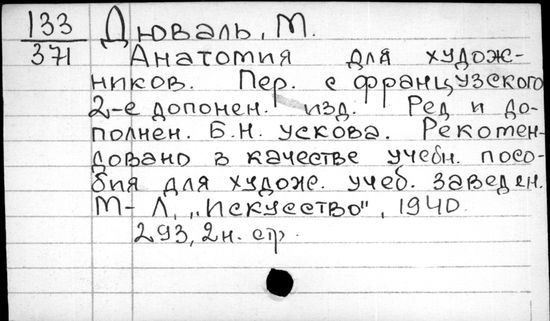 133 Дюваль, М.
371 Анатомия для худож-
ников. Пер. с французского
2-е допонен. изд. Ред и до-
полнен. Б.Н. Ускова. Рекотен-
довано в качестве учебн. посо-
бия для худож. учеб. заведен.
М-Л, „Искусство", 1940.
293, 2н. стр.